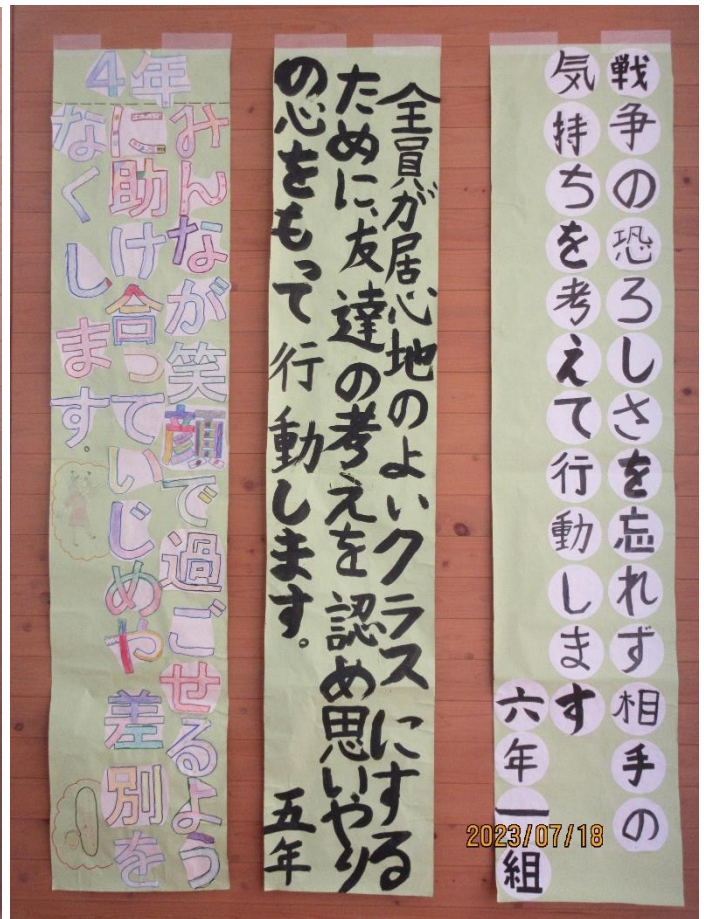 戦争の恐ろしさを忘れず相手の
気持ちを考えて行動します
六年一組
全員が居心地のよいクラスにする
ために、友達の考えを認め思いやり
の心をもって行動します。
五年
4年
みんなが笑顔で過ごせるよう
に助け合っていじめや差別を
なくします。
2023/07/18